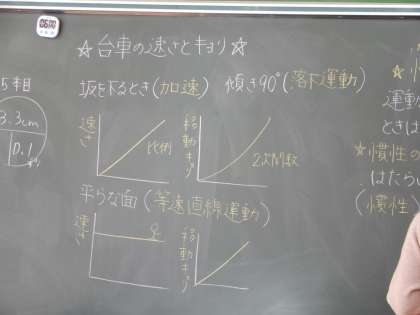 ☆台車の速さとキョリ☆
坂を下るとき(加速) 傾き90°(落下運動)
速さ
比例
移動キョリ
2次関数
平らな面(等速直線運動)
速さ
移動キョリ
5相
3.3cm
0.1
運動
ときは
☆慣性の
はたらい
(慣性)